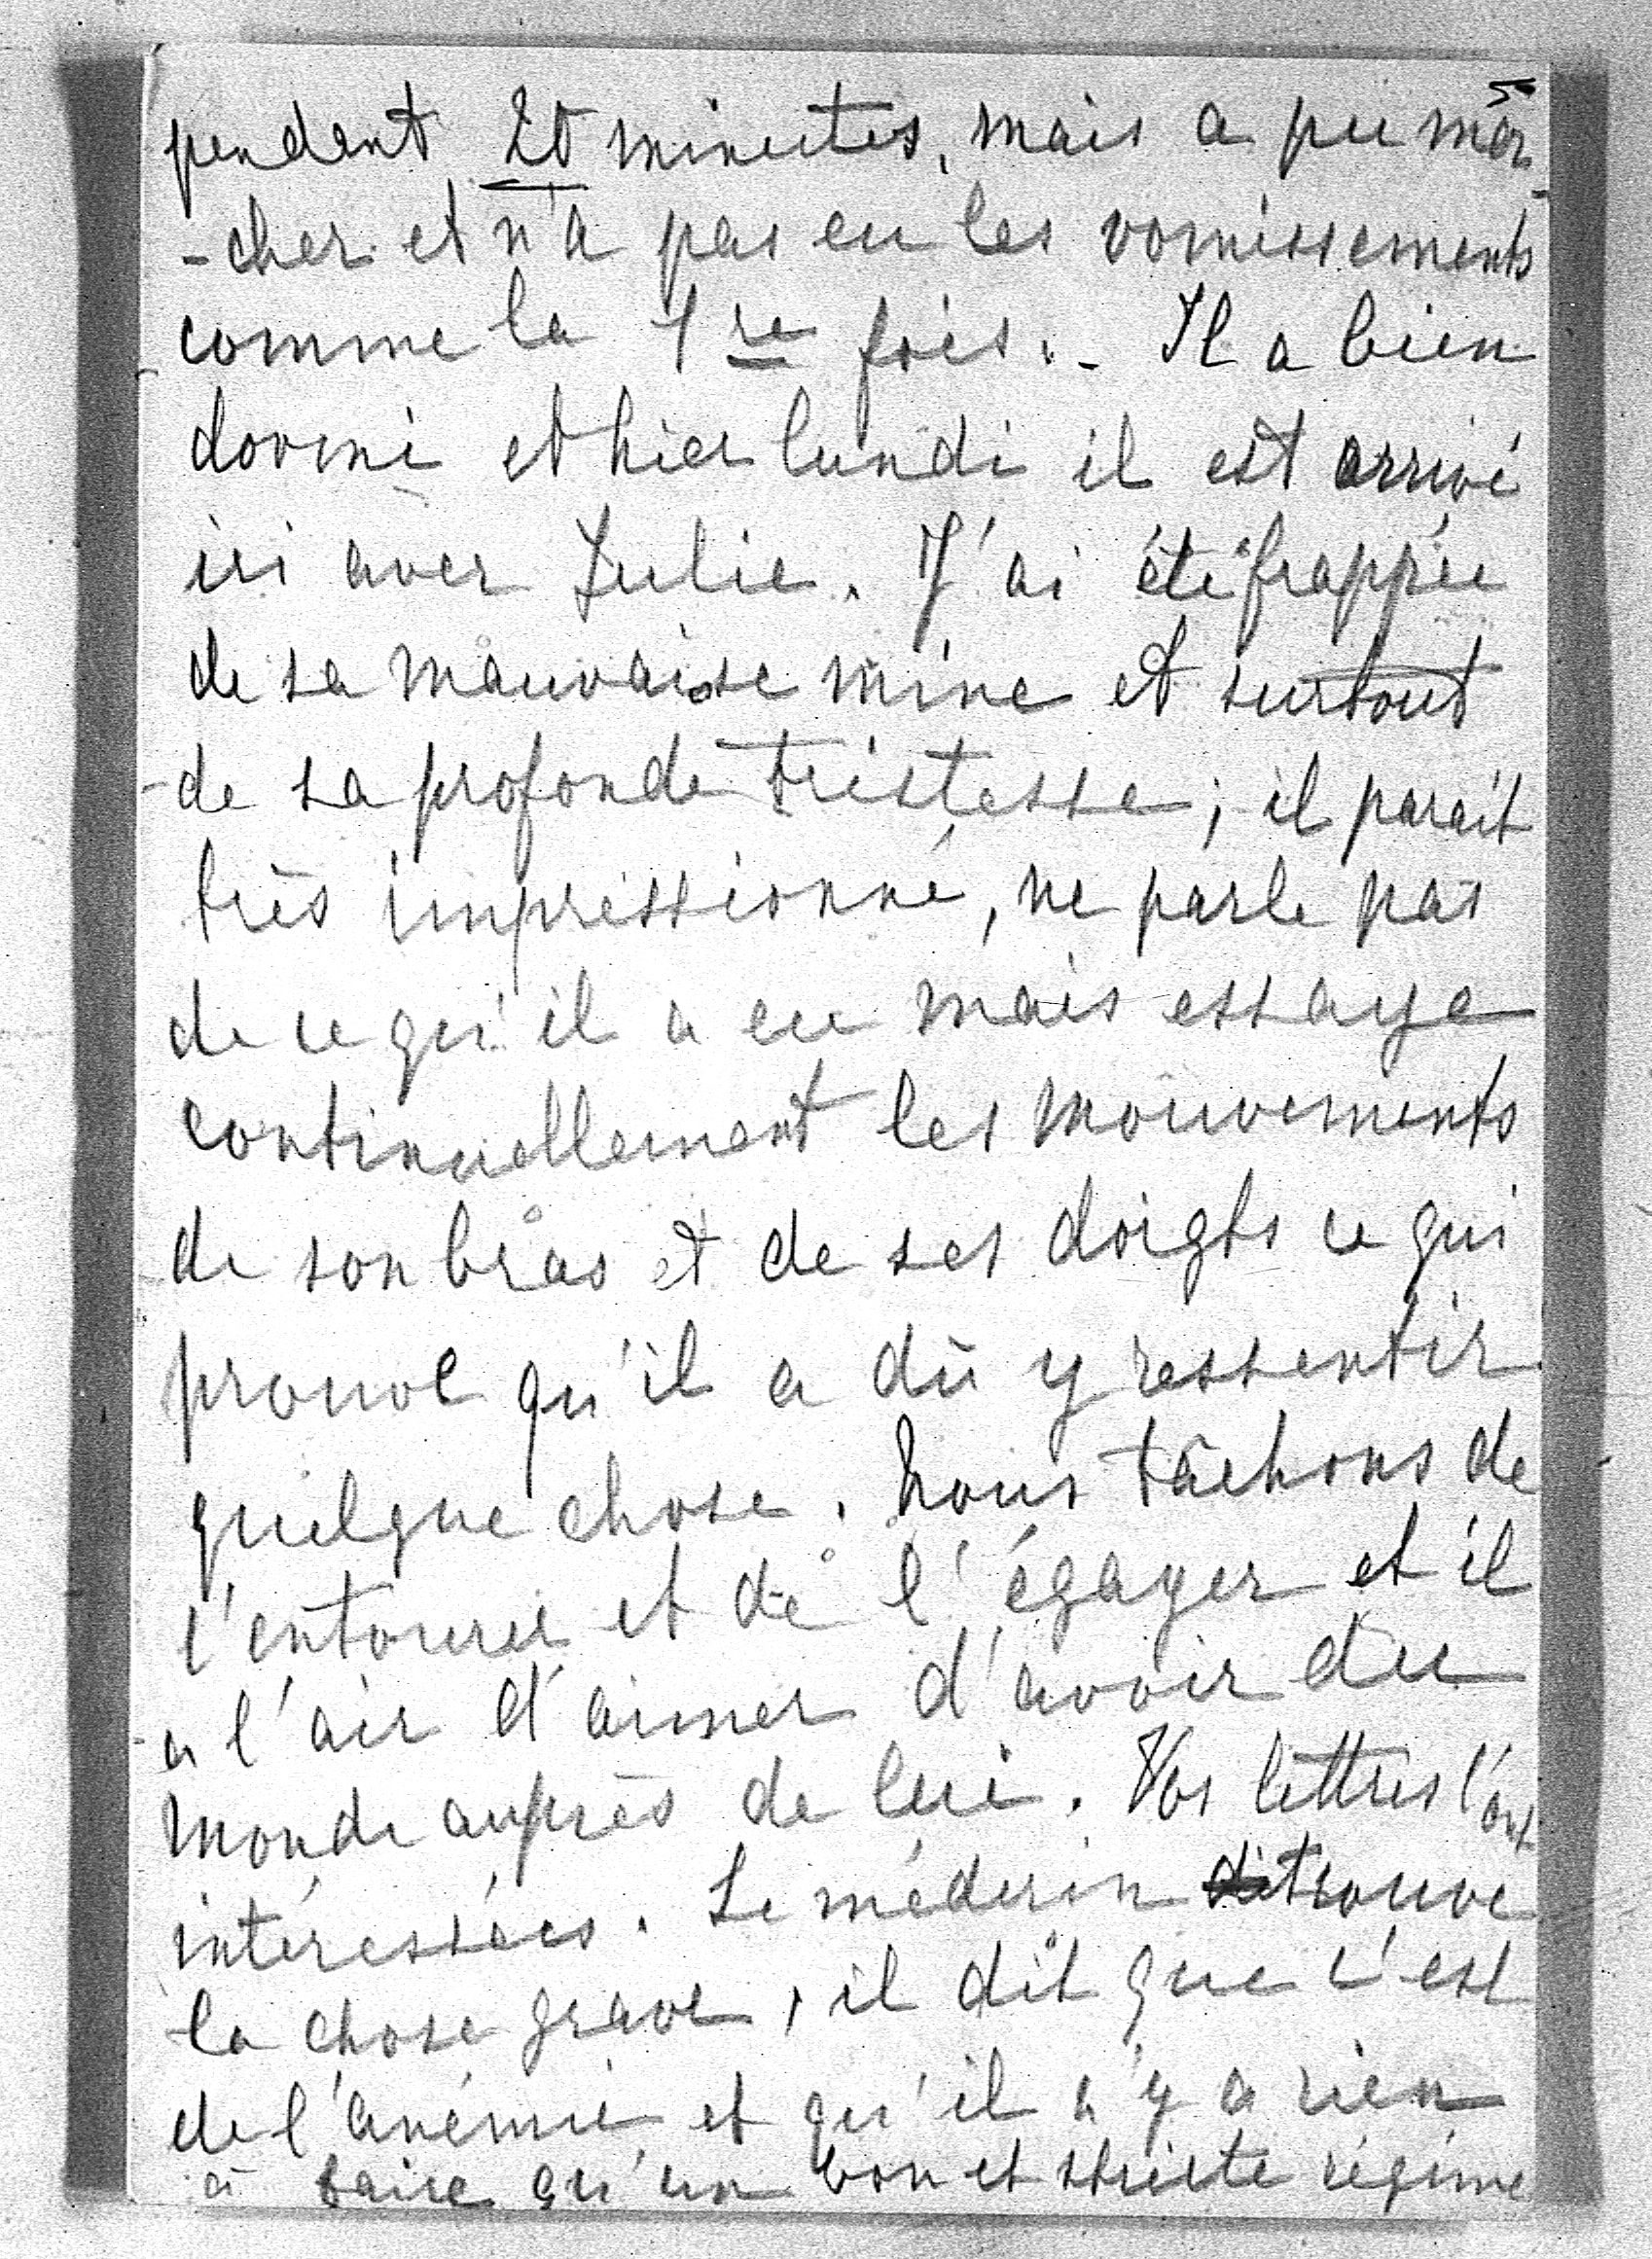 5
pendant 20 minutes, mais a pu mar-
-cher et n'a pas eu les vomissements
comme la 1re fois. - Il a bien
dormi et hier lundi il est arrivé
ici avec Julie. J'ai été frappée
de sa mauvaise mine et surtout
de sa profonde tristesse ; il parait
très impressionné, ne parle pas
de ce qu'il a eu mais essaye
continuellement les mouvements
de son bras et de ses doigts ce qui
prouve qu'il a dû y ressentir
quelque chose. Nous tâchons de
l'entourer et de l'égayer et il
a l'air d'aimer d'avoir du
monde auprès de lui. Vos lettres l'ont
intéressées. Le médecin dit trouve
la chose grave, il dit que c'est
de l'anémie et qu'il n'y a rien
à faire qu'un bon et stricte régime